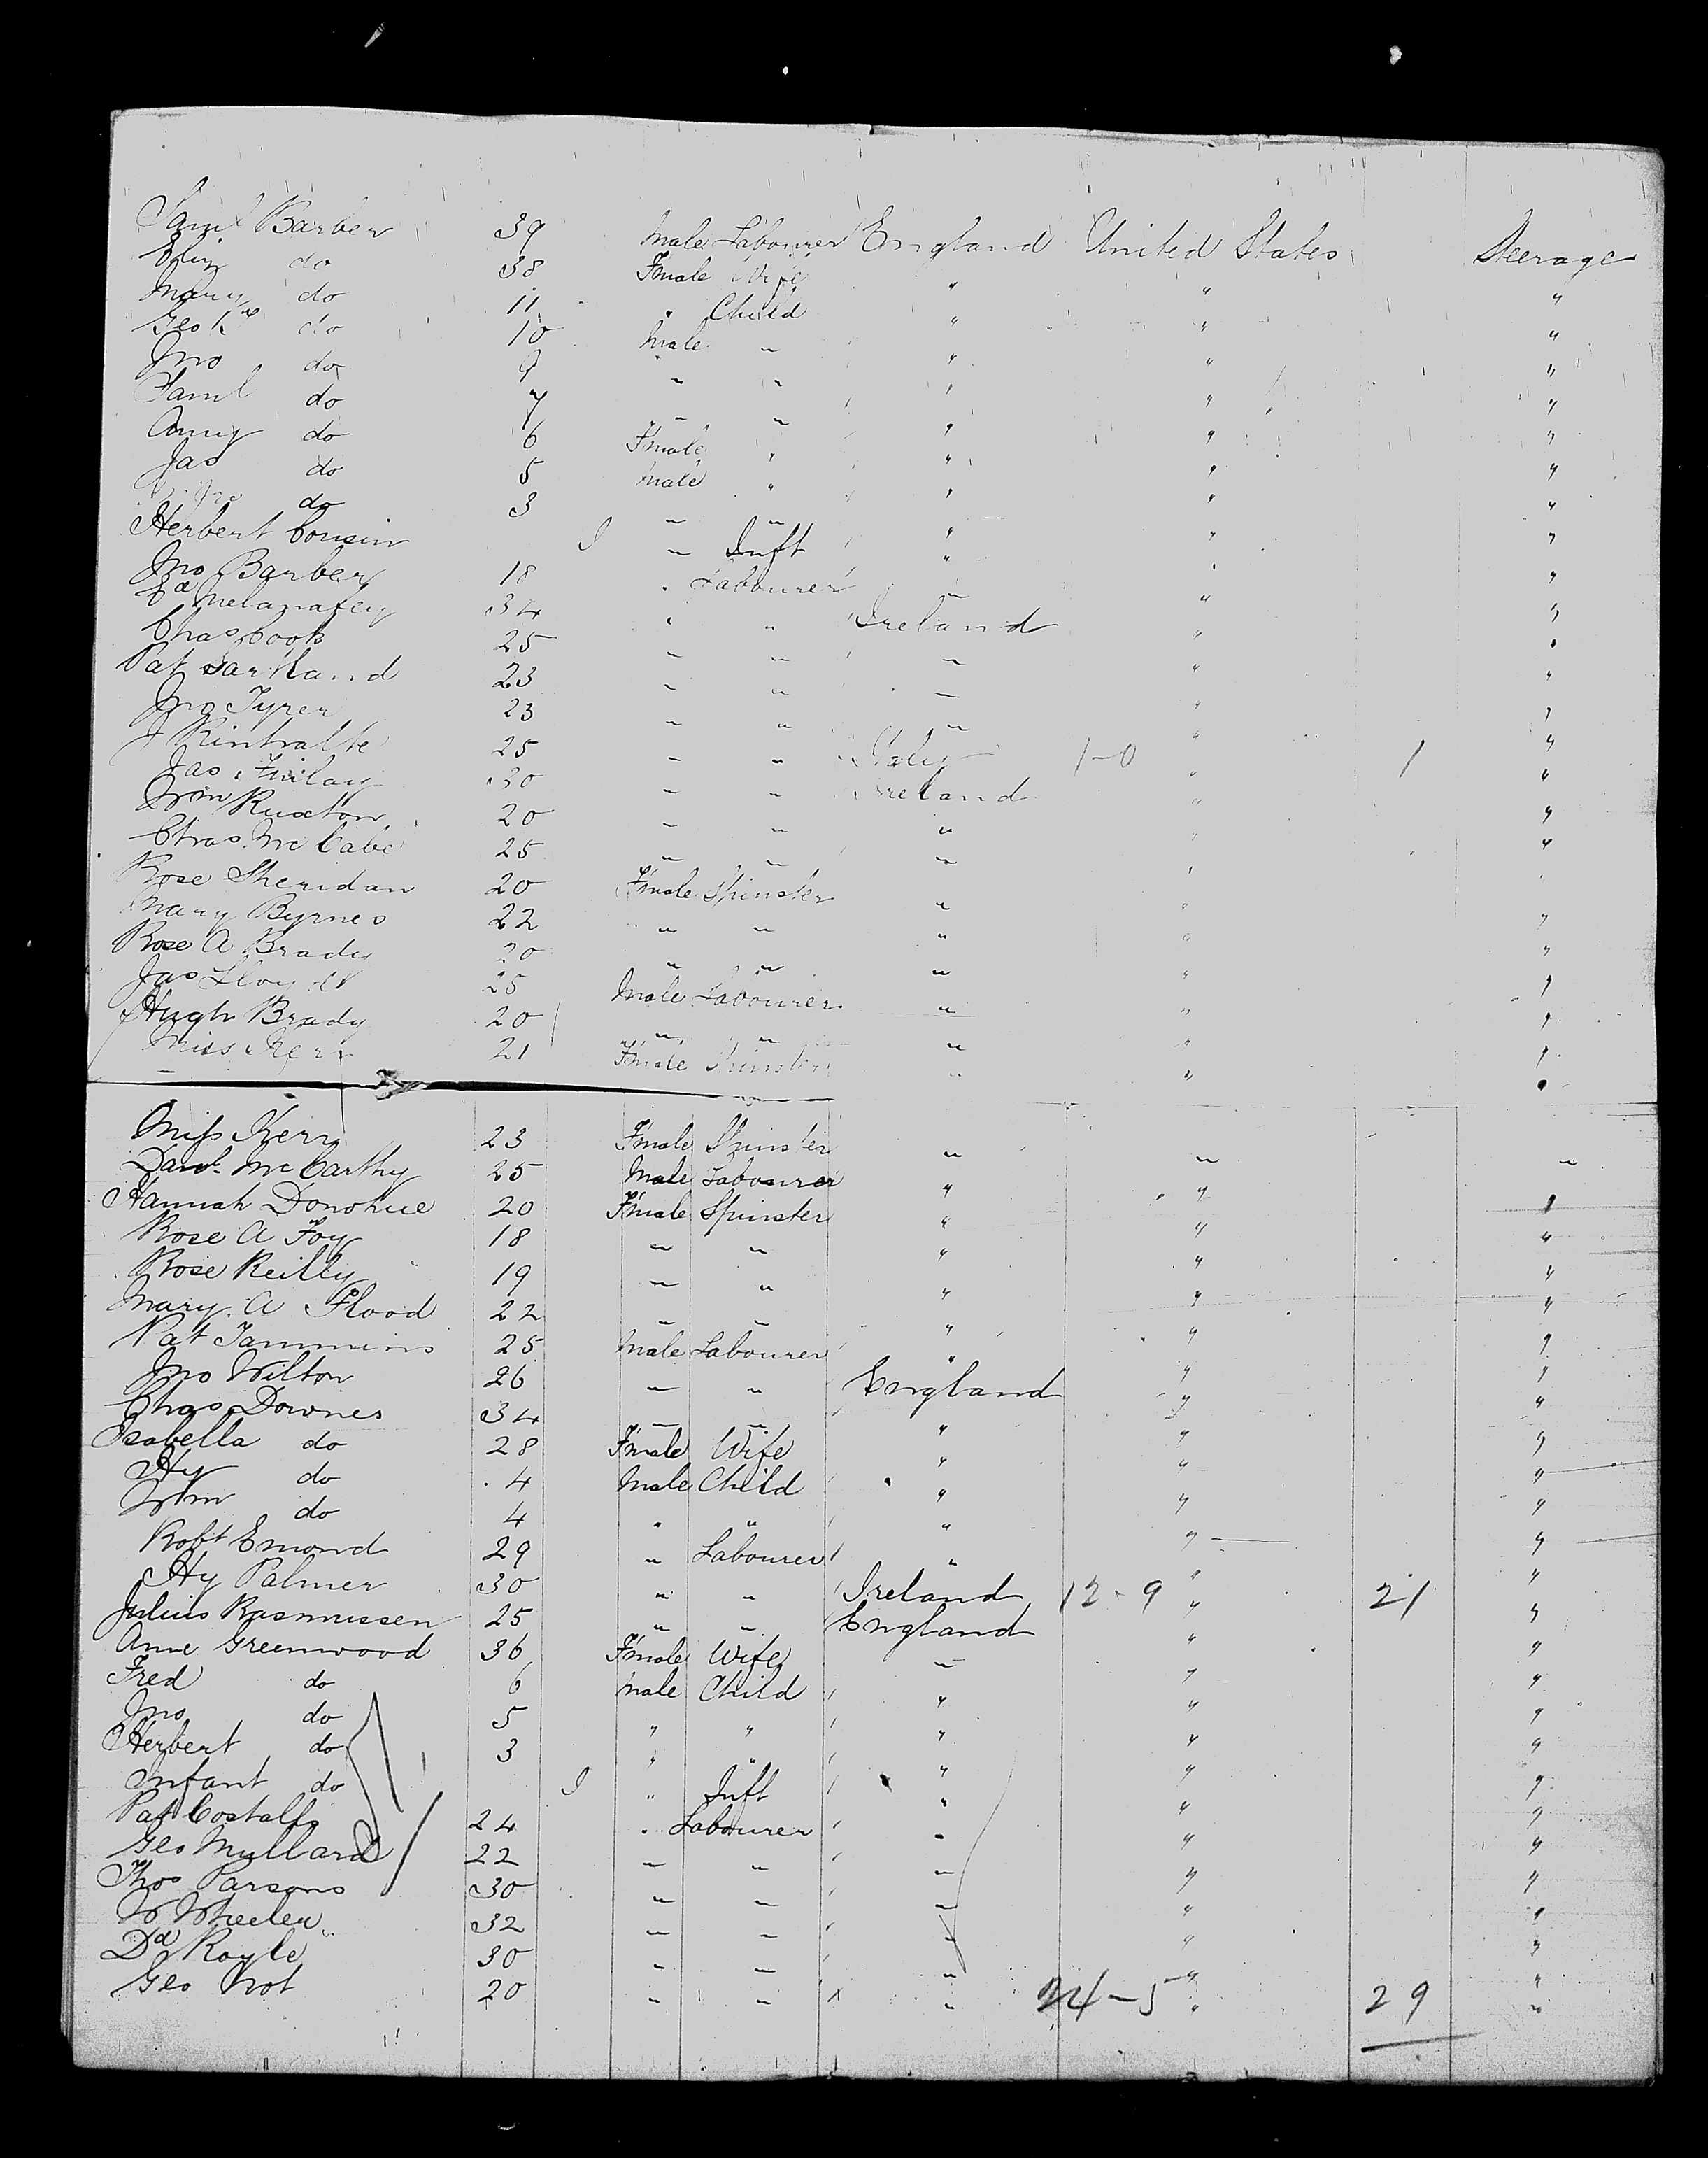 Saml Barber 39 Male Labourer England United States Steerage
Eliz do 38 Fmale Wife " " "
Mary do 11 " Child " " "
Geo do 10 Male " " " "
Jno do 9 " " " " "
Saml do 7 " " " " "
Amy do 6 Fmale " " " "
Jas do 5 Male " " " "
do 3 " " " " "
Herbert Cousin I " Inft " " "
Jno Barber 18 " Labourer " " "
Ed 34 " " Ireland " "
Chas Cook 25 " " " " "
Pat Gartland 23 " " " " "
Jno Tyrer 23 " " " " "
J 25 " " Italy 1-0 " 1 "
Jas Finlay 30 " " Ireland " "
Wm Ruxton 20 " " " " "
Chas McCabe 25 " " " " "
Rose Sheridan 20 Fmale Spinster " " "
Mary Byrnes 22 " " " " "
Rose A Brady 20 " " " " "
Jas 25 Male Labourer " " "
Hugh Brady 20 " " " " "
Miss Kerr 21 Fmale Spinster " " "
Miss Kerr 23 Fmale Spinster " " "
Danl McCarthy 25 Male Labourer " " "
Hannah Donohue 20 Fmale Spinster " " "
Rose A Foy 18 " " " " "
Rose Reilly 19 " " " " "
Mary A Flood 22 " " " " "
Pat Tammins 25 Male Labourer " " "
Jno Wilton 26 " " England " "
Chas Downes 34 " " " " "
Isabella do 28 Fmale Wife " " "
Hy do 4 Male Child " " "
Wm do 4 " " " " "
Robt Emond 29 " Labourer " " "
Hy Palmer 30 " " Ireland 12-9 " 21 "
Julius Rasmussen 25 " " England " "
Anne Greenwood 36 Fmale Wife " " "
Fred do 6 Male Child " " "
Jno do 5 " " " " "
Herbert do 3 " " " " "
Infant do I " Inft " " "
Pat Costallo 24 " Labourer " " "
Geo Mullard 22 " " " " "
Thos Parsons 30 " " " " "
W Wheeler 32 " " " " "
Dd Royle 30 " " " " "
Geo 20 " " " 24-5 " 29 "